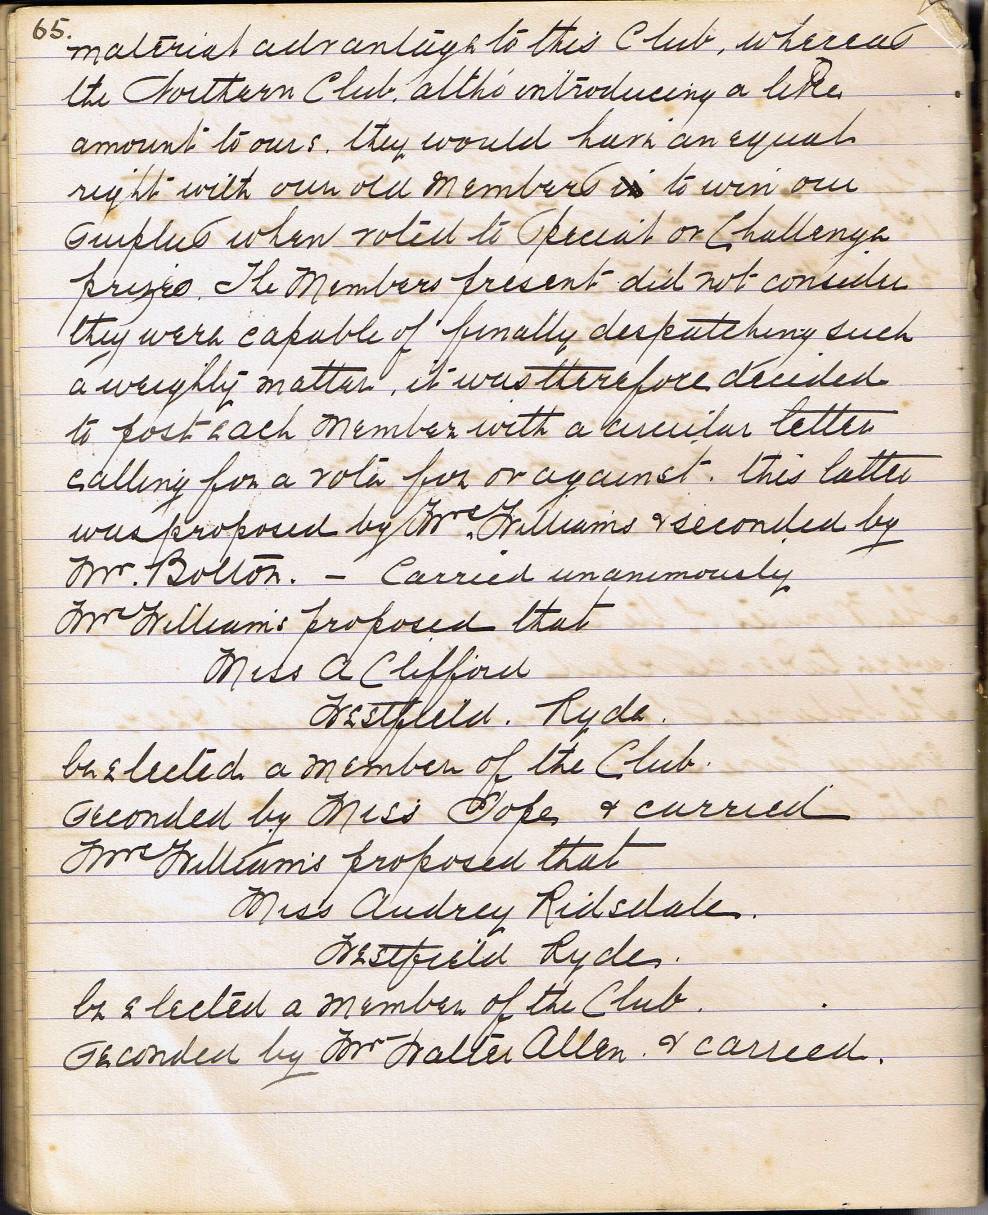 65.
material advantage to this Club, whereas
the Northern Club. altho' introducing a like
amount to ours. they would have an equal
right with our old Members to win our
Surplus when voted to Special or Challenge
prizes. The Members present did not consider
they were capable of finally despatching such
a weighty matter, it was therefore decided
to post each Member with a circular letter
calling for a vote for or against. this latter
was proposed by Mrs. Williams & seconded by
Mr. Bolton. — Carried unanimously
Mrs Williams proposed that
Miss A Clifford
Westfield. Ryde.
be elected a member of the Club.
Seconded by Miss Pope & carried
Mrs Williams proposed that
Miss Audrey Ridsdale.
Westfield Ryde.
be elected a member of the Club.
Seconded by Mr Walter Allen. & carried.